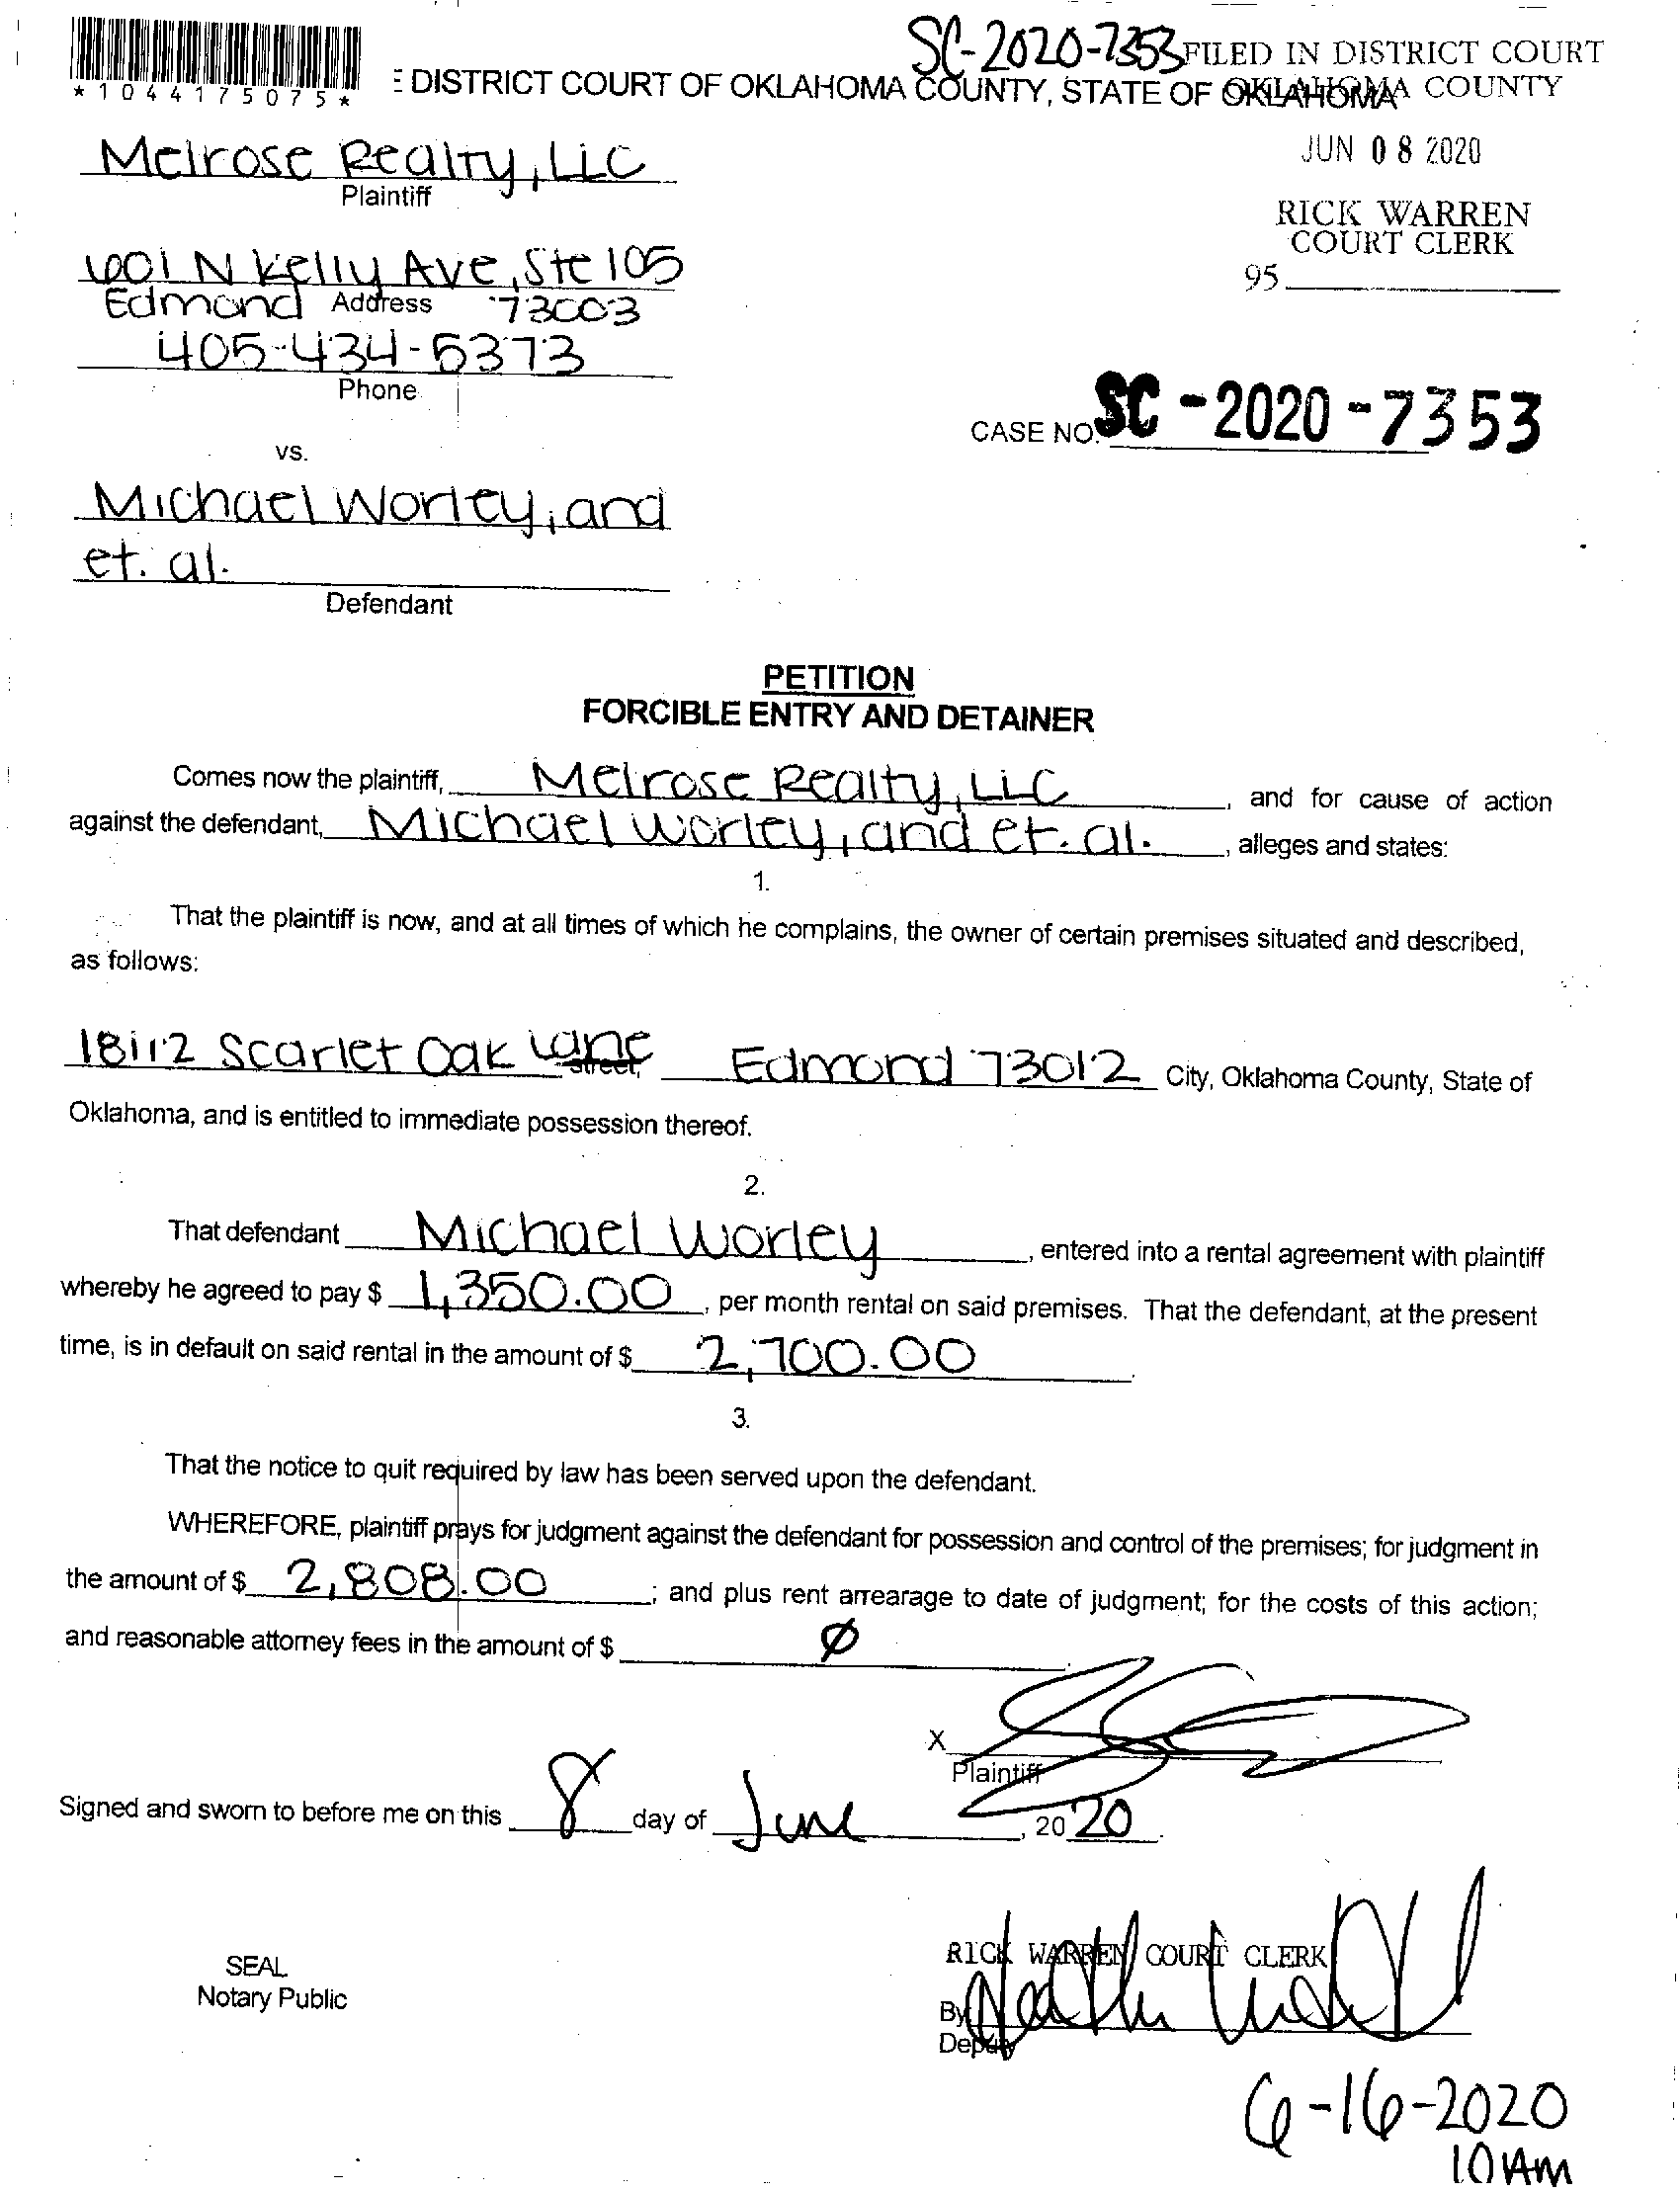 SC-2020-7353 FILED IN DISTRICT COURT
*1044175075*
E DISTRICT COURT OF OKLAHOMA COUNTY, STATE OF OKLAHOMA
OKLAHOMA COUNTY
JUN 08 2020
RICK WARREN
COURT CLERK
95
Melrose Realty, LLC
Plaintiff
601 N Kelly Ave, Ste 105
Edmond Address 73003
405-434-5373
Phone
CASE NO. SC-2020-7353
vs.
Michael Worley, and
et. al.
Defendant
PETITION
FORCIBLE ENTRY AND DETAINER
Comes now the plaintiff, Melrose Realty, LLC, and for cause of action
against the defendant, Michael Worley, and et. al., alleges and states:
1.
That the plaintiff is now, and at all times of which he complains, the owner of certain premises situated and described,
as follows:
18112 Scarlet Oak Lane street, Edmond 73012 City, Oklahoma County, State of
Oklahoma, and is entitled to immediate possession thereof.
2.
That defendant Michael Worley, entered into a rental agreement with plaintiff
whereby he agreed to pay $ 1,350.00, per month rental on said premises. That the defendant, at the present
time, is in default on said rental in the amount of $ 2,700.00.
3.
That the notice to quit required by law has been served upon the defendant.
WHEREFORE, plaintiff prays for judgment against the defendant for possession and control of the premises; for judgment in
the amount of $ 2,808.00; and plus rent arrearage to date of judgment; for the costs of this action;
and reasonable attorney fees in the amount of $ Ø.
X
Plaintiff
Signed and sworn to before me on this 8 day of June, 2020.
SEAL
Notary Public
RICK WARREN COURT CLERK
By
Deputy
6-16-2020
10 AM